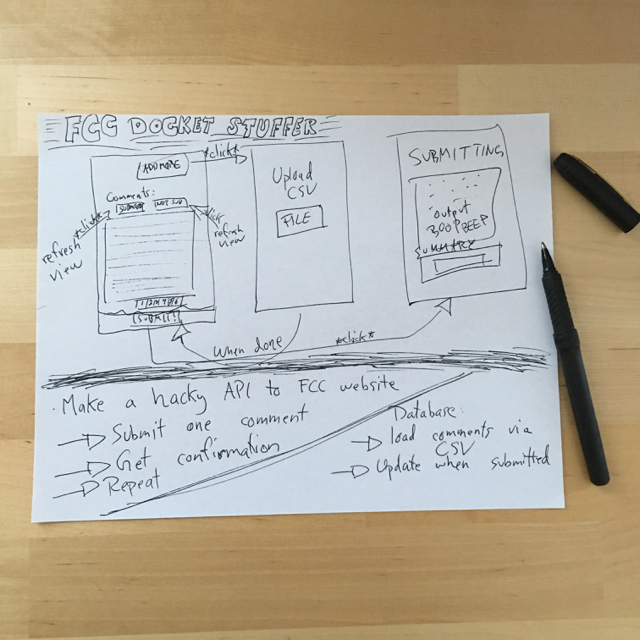 FCC DOCKET STUFFER
ADD MORE
*click*
Comments:
*click*
click
refresh
view
refresh
view
SUBMIT!
Upload
CSV
FILE
SUBMITTING
output
BOOP BEEP
SUMMARY
when done
*click*
· Make a hacky API to FCC website
Submit one comment
Get confirmation
Repeat
Database:
load comments via
CSV
Update when submitted